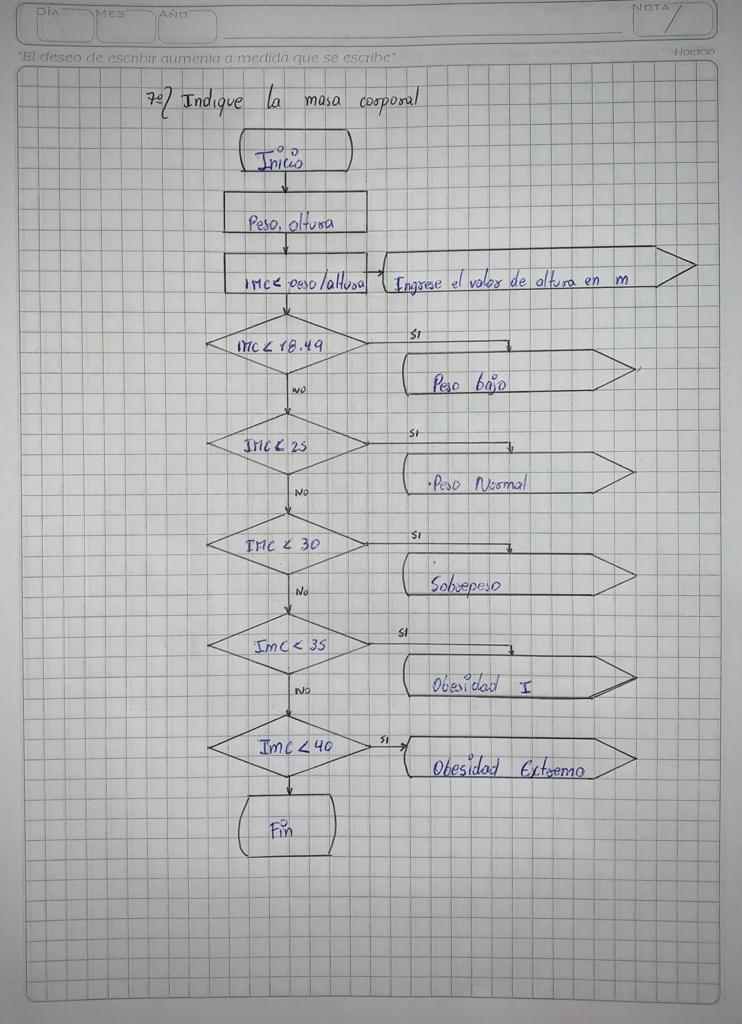 DÍA MES AÑO NOTA
"El deseo de escribir aumenta a medida que se escribe" Horacio
7º) Indique la masa corporal
Inicio
Peso, altura
IMC< peso/altura
Ingrese el valor de altura en m
IMC < 18.49
SI
Peso bajo
NO
IMC < 25
SI
Peso Normal
NO
IMC < 30
SI
Sobrepeso
NO
Imc < 35
SI
Obesidad I
NO
Imc < 40
SI
Obesidad Extrema
Fin